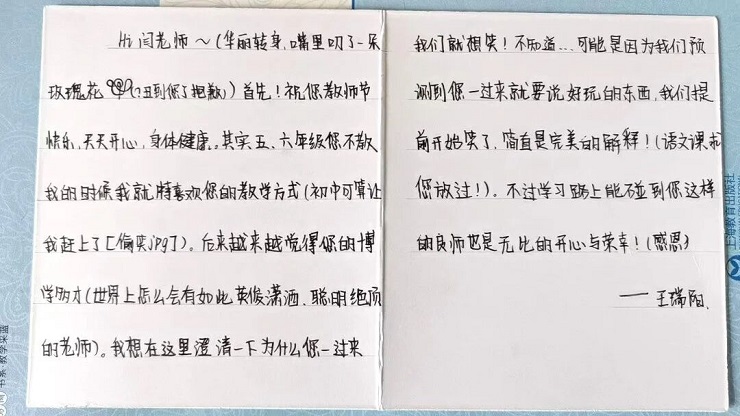 Hi 闫老师～(华丽转身,嘴里叼了一朵
玫瑰花 (?丑到您了抱歉) 首先!祝您教师节
快乐,天天开心,身体健康。其实五、六年级您不教
我的时候我就特喜欢您的教学方式(初中可算让
我赶上了[偷笑jpg])。后来越来越觉得您的博
学多才(世界上怎么会有如此英俊潇洒、聪明绝顶
的老师)。我想在这里澄清一下为什么您一过来
我们就想笑!不知道...可能是因为我们预
测到您一过来就要说好玩的东西,我们提
前开始笑了,简直是完美的解释!(语文课求
您放过!)。不过学习路上能碰到您这样
的良师也是无比的开心与荣幸!(感恩)
——王瑞阳.
上海教育出版社
书系·教学采蓝